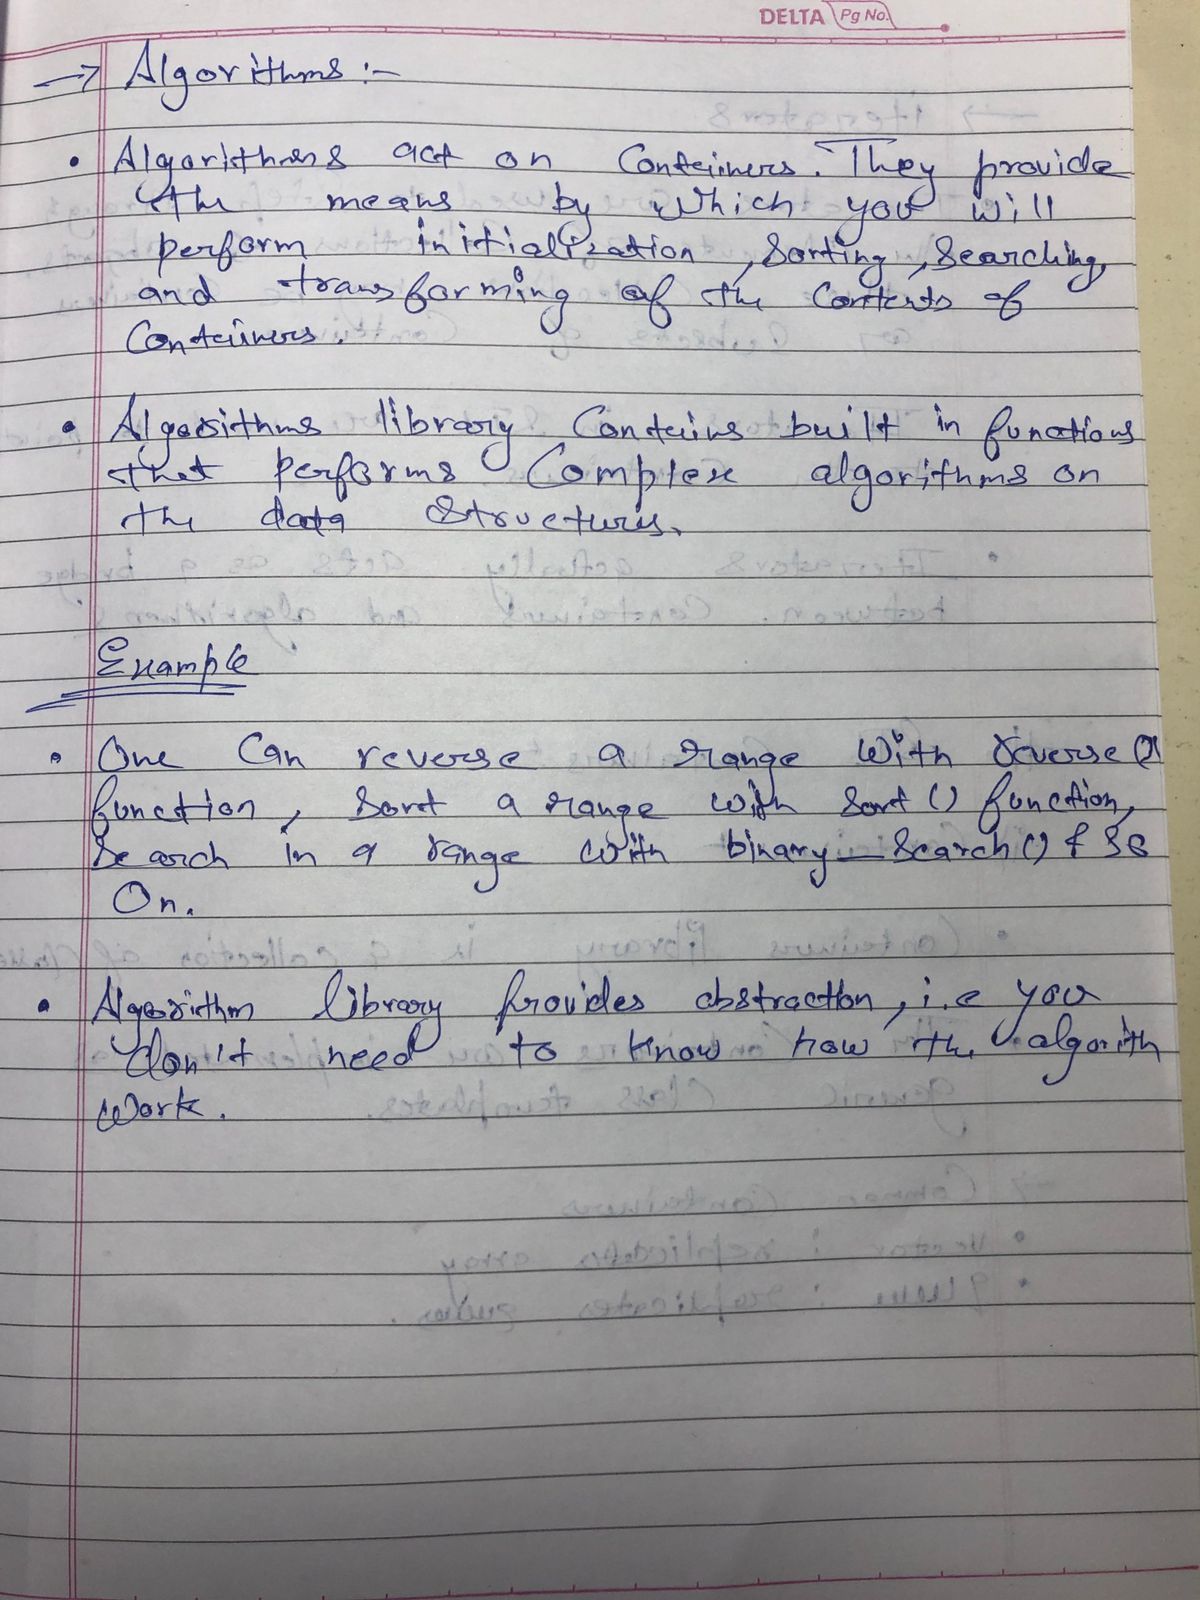 DELTA Pg No.
→ Algorithms :-
• Algorithms act on Containers. They provide
the means by which you will
perform initialization, Sorting, Searching,
and transforming of the Contents of
Containers.
• Algorithms library Contains built in functions
that performs Complex algorithms on
the data Structures.
Example
• One Can reverse a range with reverse()
function, Sort a range with Sort () function,
Search in a range with binary_Search() & So
On.
• Algorithm library Provides abstraction, i.e you
don't need to know how the algorith
work.